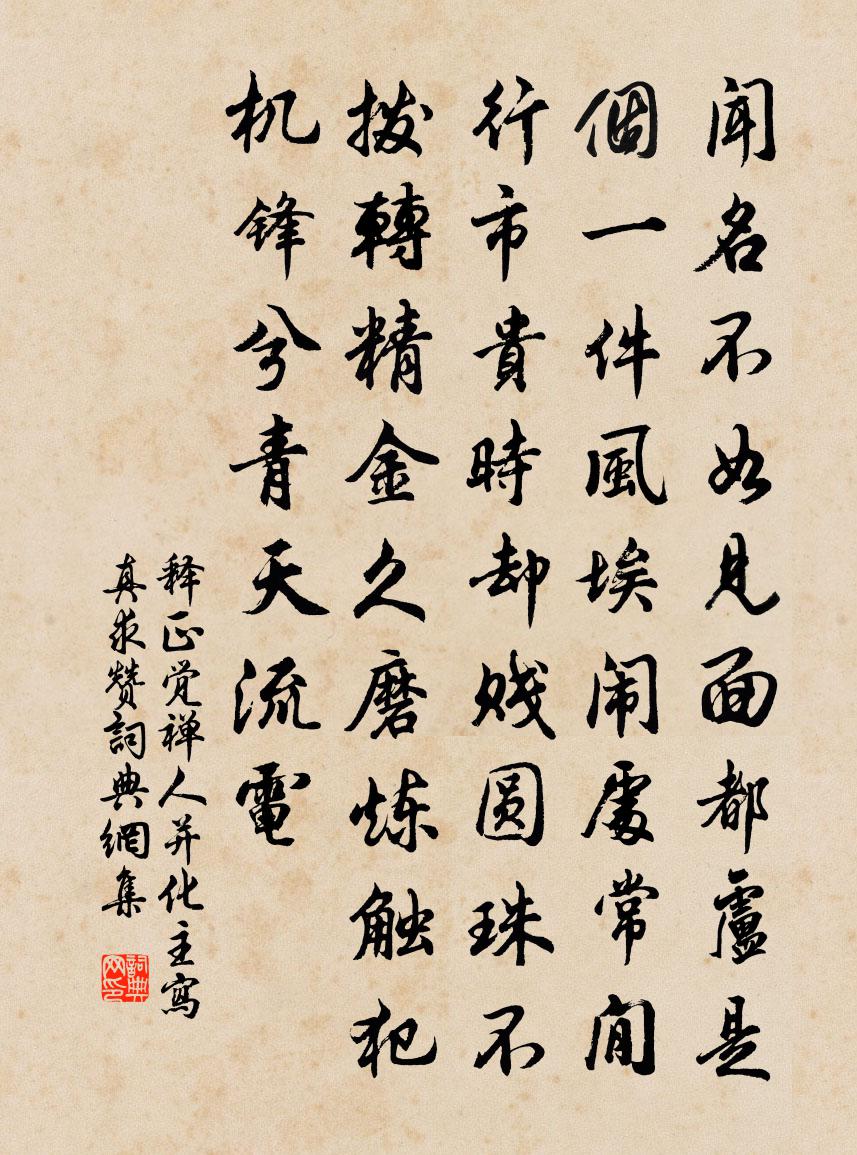 闻名不如见面都盧是
個一件風埃闹處常閒
行市貴時却贱圆珠不
拨轉精金久磨炼触犯
机锋兮青天流電
释正觉禅人并化主寫
真求赞詞典網集
詞典网印